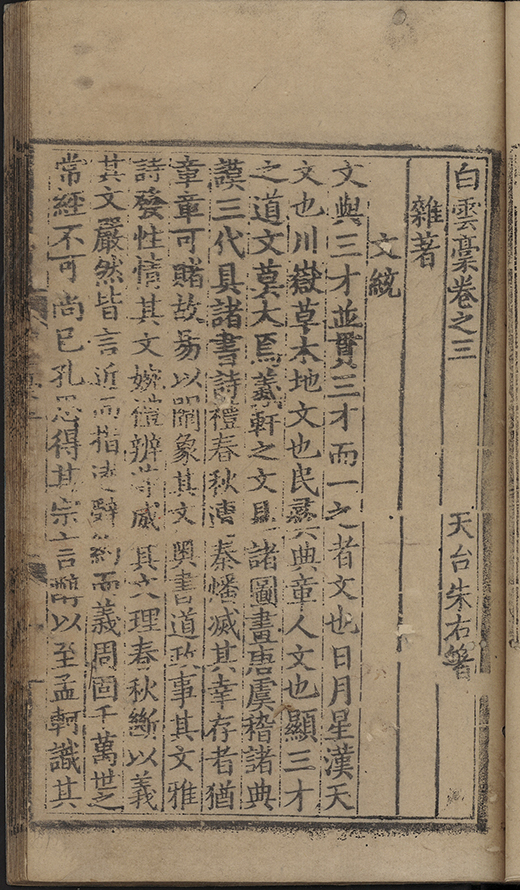 白雲稾卷之三　天台朱右著
雜著
文統
文與三才並貫三才而一之者文也日月星漢天
文也川嶽草木地文也民彛典章人文也顯三才
之道文莫大焉羲軒之文見諸圖畫唐虞稽諸典
謨三代具諸書詩禮春秋遭秦燔滅其幸存者猶
章章可睹故易以闡象其文奧書道政事其文雅
詩發性情其文婉禮辨等威其文理春秋斷以義
其文嚴然皆言近而指遠辭約而義周固千萬世之
常經不可尚已孔思得其宗言醇以至孟軻識其